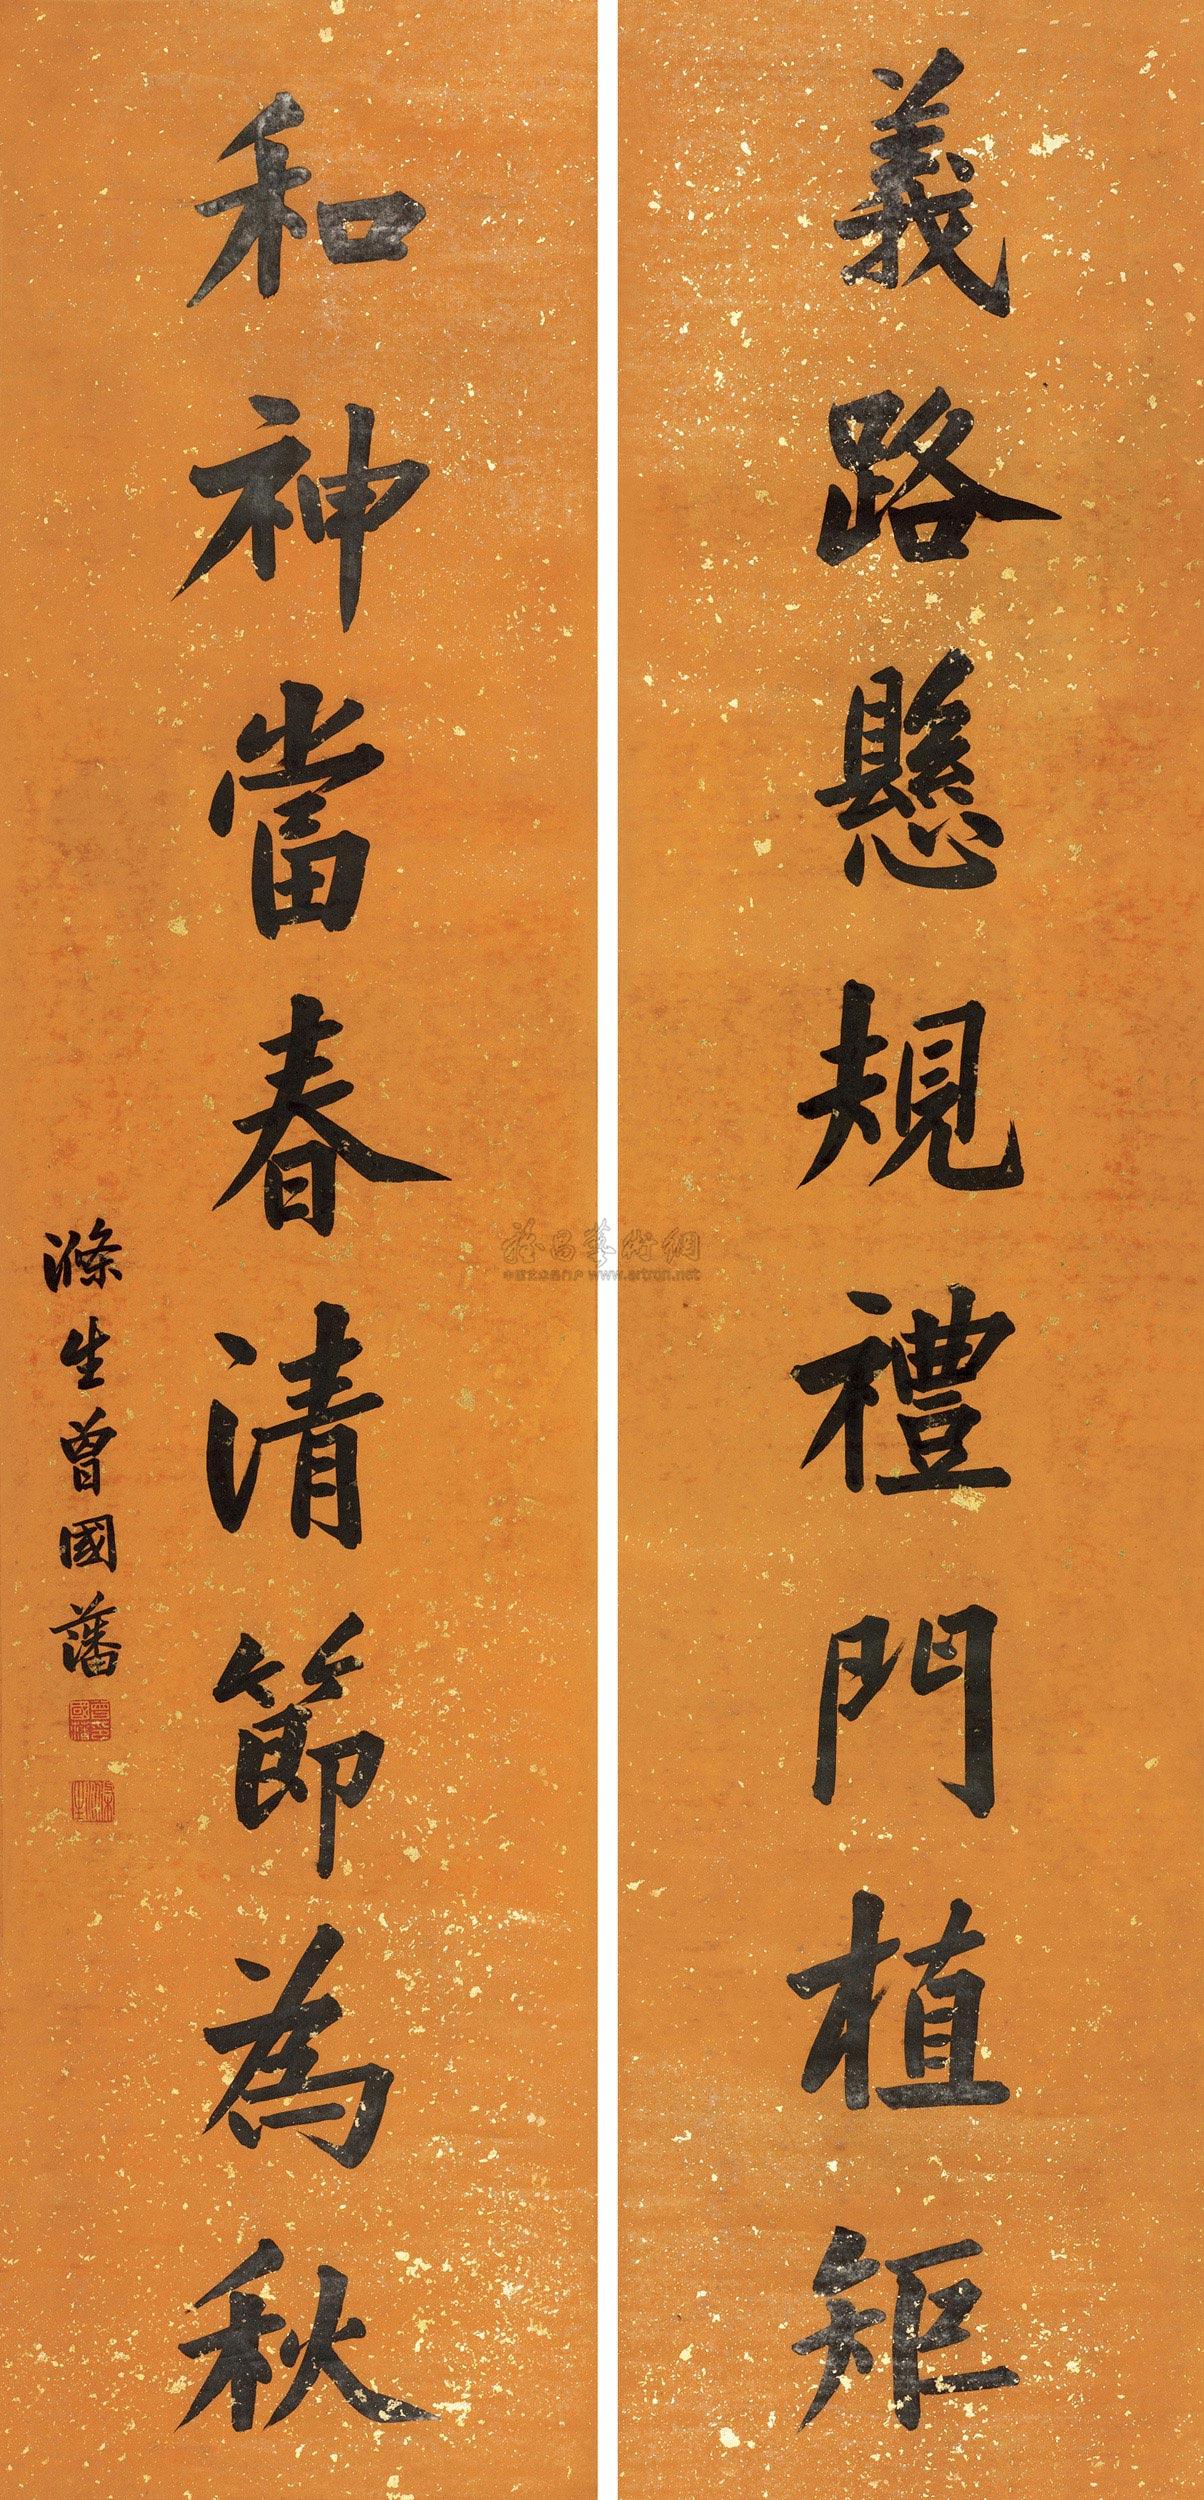 義路懸規禮門植矩
和神當春清節為秋
滌生曾國藩
雅昌藝術網
中國藝術品門户 www.artron.net